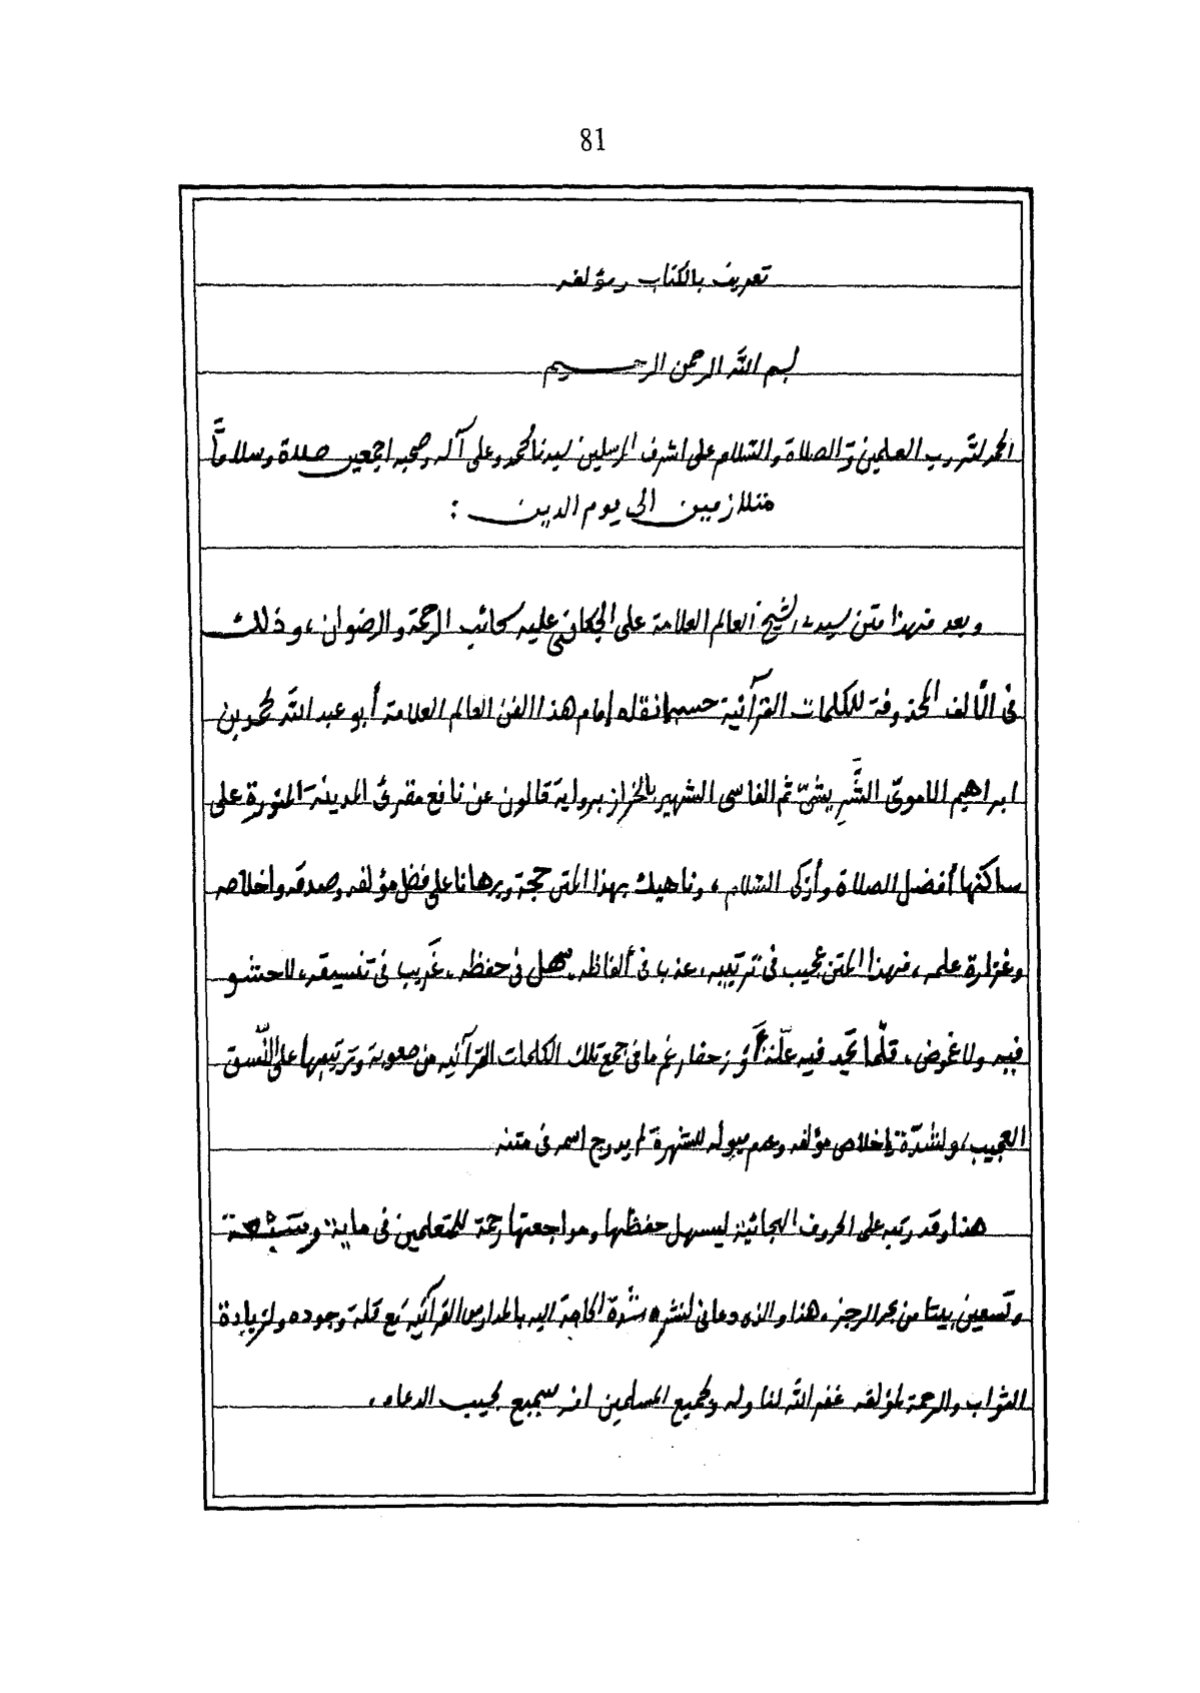 81
تعريف بالكتاب ومؤلفه
بسم الله الرحمن الرحيم
الحمد لله رب العلمين والصلاة والسلام على اشرف المرسلين سيدنا محمد وعلى آله وصحبه اجمعين صلاة وسلاما
متلازمين الى يوم الدين :
وبعد فهذا متن سيدي الشيخ العالم العلامة على الجكاني عليه سحائب الرحمة والرضوان ، وذلك
في الألف المحذوفة للكلمات القرآنية حسبما نقله إمام هذا الفن العالم العلامة أبو عبد الله محمد بن
ابراهيم الاموي الشريشي ثم الفاسى الشهير بالخراز برواية قالون عن نافع مقرئ المدينة المنورة على
ساكنها أفضل الصلاة وأزكى السلام ، وناهيك بهذا المتن حجة وبرهانا على فضل مؤلفه وصدقه واخلاصه
وغزارة علمه ، فهذا المتن عجيب في ترتيبه ، عذب في ألفاظه ، سهل في حفظه ، غريب في تنسيقه ، لا حشو
فيه ولا غموض ، قلما تجد فيه علة أو زحفا رغم ما في جمع تلك الكلمات القرآنية من صعوبة وترتيبها على النسق
العجيب ، ولشدة إخلاص مؤلفه وعدم ميوله للشهرة لم يدرج اسمه في متنه
هذا وقد رتبه على الحروف الهجائية ليسهل حفظها ومراجعتها رحمة للمتعلمين في ماية
وتسعين بيتا من بحر الرجز ، هذا والذى دعاني لنشره شدة الحاجة اليه بالمدارس القرآنية مع قلة وجوده ولزيادة
الثواب والرحمة لمؤلفه غفر الله لنا وله ولجميع المسلمين انه سميع مجيب الدعاء .